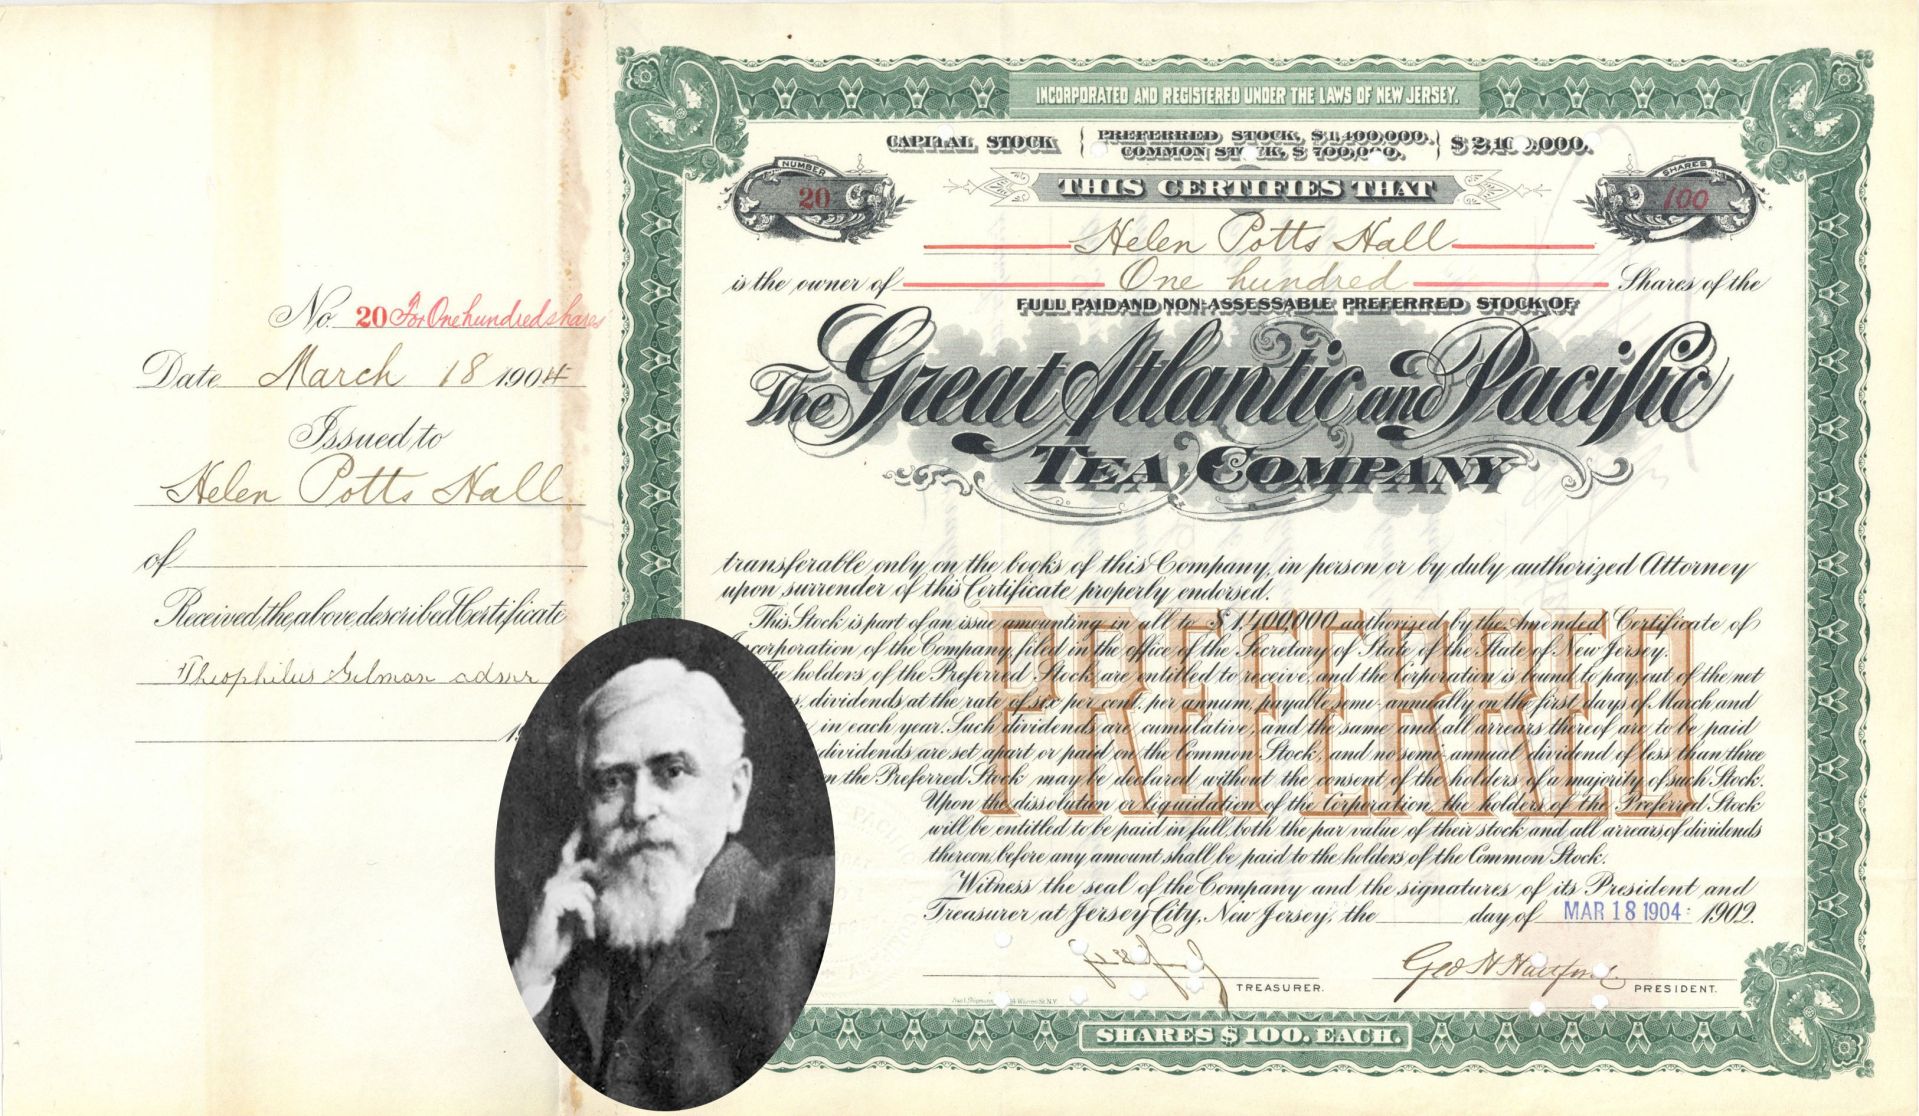 No. 20 For One hundred shares
Date March 18 1904
Issued to
Helen Potts Hall
of
Received the above described Certificate
Theophilus Gilman admr
INCORPORATED AND REGISTERED UNDER THE LAWS OF NEW JERSEY.
CAPITAL STOCK { PREFERRED STOCK, $1,400,000. } $2,100,000.
COMMON STOCK, $700,000.
NUMBER
20
SHARES
100
THIS CERTIFIES THAT
Helen Potts Hall
is the owner of One hundred Shares of the
FULL PAID AND NON-ASSESSABLE PREFERRED STOCK OF
The Great Atlantic and Pacific
TEA COMPANY
transferable only on the books of this Company, in person or by duly authorized Attorney
upon surrender of this Certificate properly endorsed.
PREFERRED
This Stock is part of an issue amounting in all to $1,400,000 authorized by the Amended Certificate of
Incorporation of the Company, filed in the office of the Secretary of State of the State of New Jersey.
The holders of the Preferred Stock are entitled to receive, and the Corporation is bound to pay, out of the net
dividends at the rate of six per cent. per annum, payable semi-annually on the first days of March and
in each year. Such dividends are cumulative, and the same and all arrears thereof are to be paid
dividends are set apart or paid on the Common Stock, and no semi-annual dividend of less than three
on the Preferred Stock may be declared without the consent of the holders of a majority of such Stock.
Upon the dissolution or liquidation of the Corporation, the holders of the Preferred Stock
will be entitled to be paid in full, both the par value of their stock and all arrears of dividends
thereon, before any amount shall be paid to the holders of the Common Stock.
Witness the seal of the Company and the signatures of its President and
Treasurer at Jersey City, New Jersey, the day of MAR 18 1904 1902.
Geo H Hartford
TREASURER.
PRESIDENT.
SHARES $100. EACH.